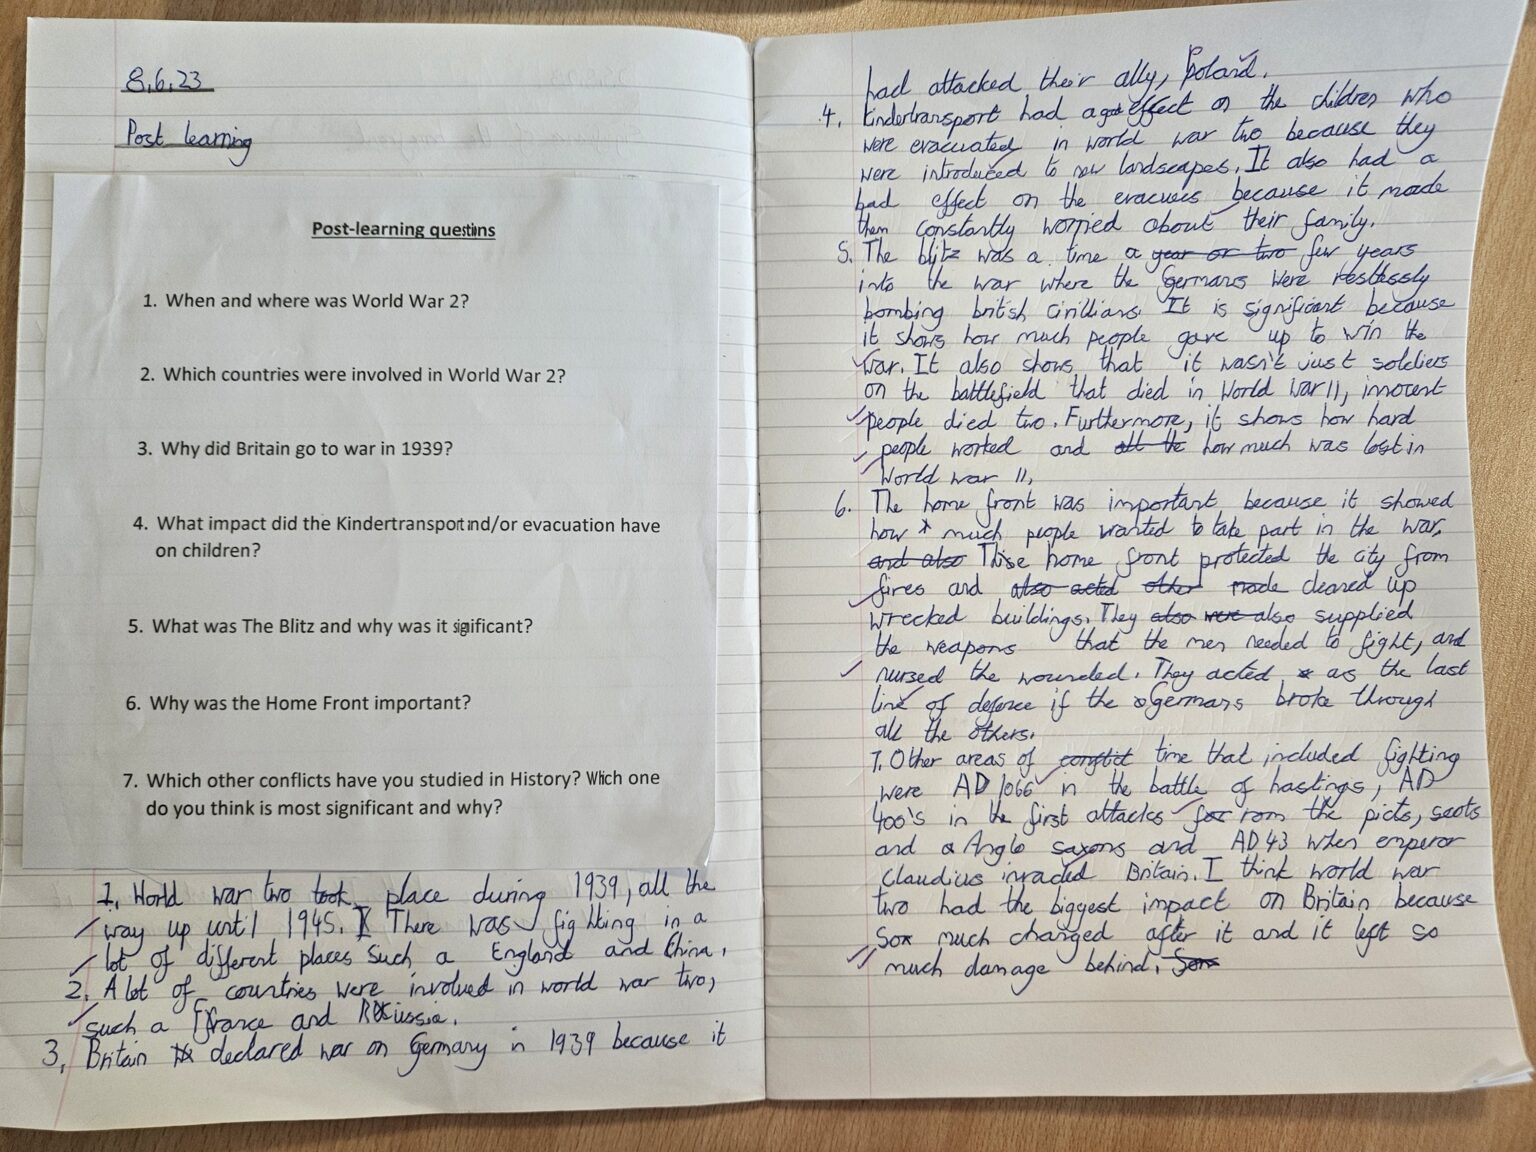 8.6.23
Post learning
Post-learning questions
1. When and where was World War 2?
2. Which countries were involved in World War 2?
3. Why did Britain go to war in 1939?
4. What impact did the Kindertransport and/or evacuation have
on children?
5. What was The Blitz and why was it significant?
6. Why was the Home Front important?
7. Which other conflicts have you studied in History? Which one
do you think is most significant and why?
1. World war two took place during 1939, all the
way up until 1945. There was fighting in a
lot of different places such a England and China.
2. A lot of countries were involved in world war two,
such a France and Russia.
3. Britain declared war on Germany in 1939 because it
had attacked their ally, Poland.
4. Kindertransport had a effect on the children who
were evacuated in world war two because they
were introduced to new landscapes. It also had a
bad effect on the evacuees because it made
them constantly worried about their family.
5. The blitz was a time a year or two few years
into the war where the Germans were restlessly
bombing british civillians. It is significant because
it shows how much people gave up to win the
war. It also shows that it wasn't just soldiers
on the battlefield that died in World War II, innocent
people died two. Furthermore, it shows how hard
people worked and all the how much was lost in
World war II.
6. The home front was important because it showed
how much people wanted to take part in the war.
and also home front protected the city from
fires and also acted other made cleared up
wrecked buildings. They also were also supplied
the weapons that the men needed to fight, and
nursed the wounded. They acted as the last
line of defence if the Germans broke through
all the others.
7. Other areas of conflict time that included fighting
were AD 1066 in the battle of hastings, AD
400's in the first attacks from the picts, scots
and Anglo saxons and AD 43 when emperor
Claudius invaded Britain. I think world war
two had the biggest impact on Britain because
so much changed after it and it left so
much damage behind.